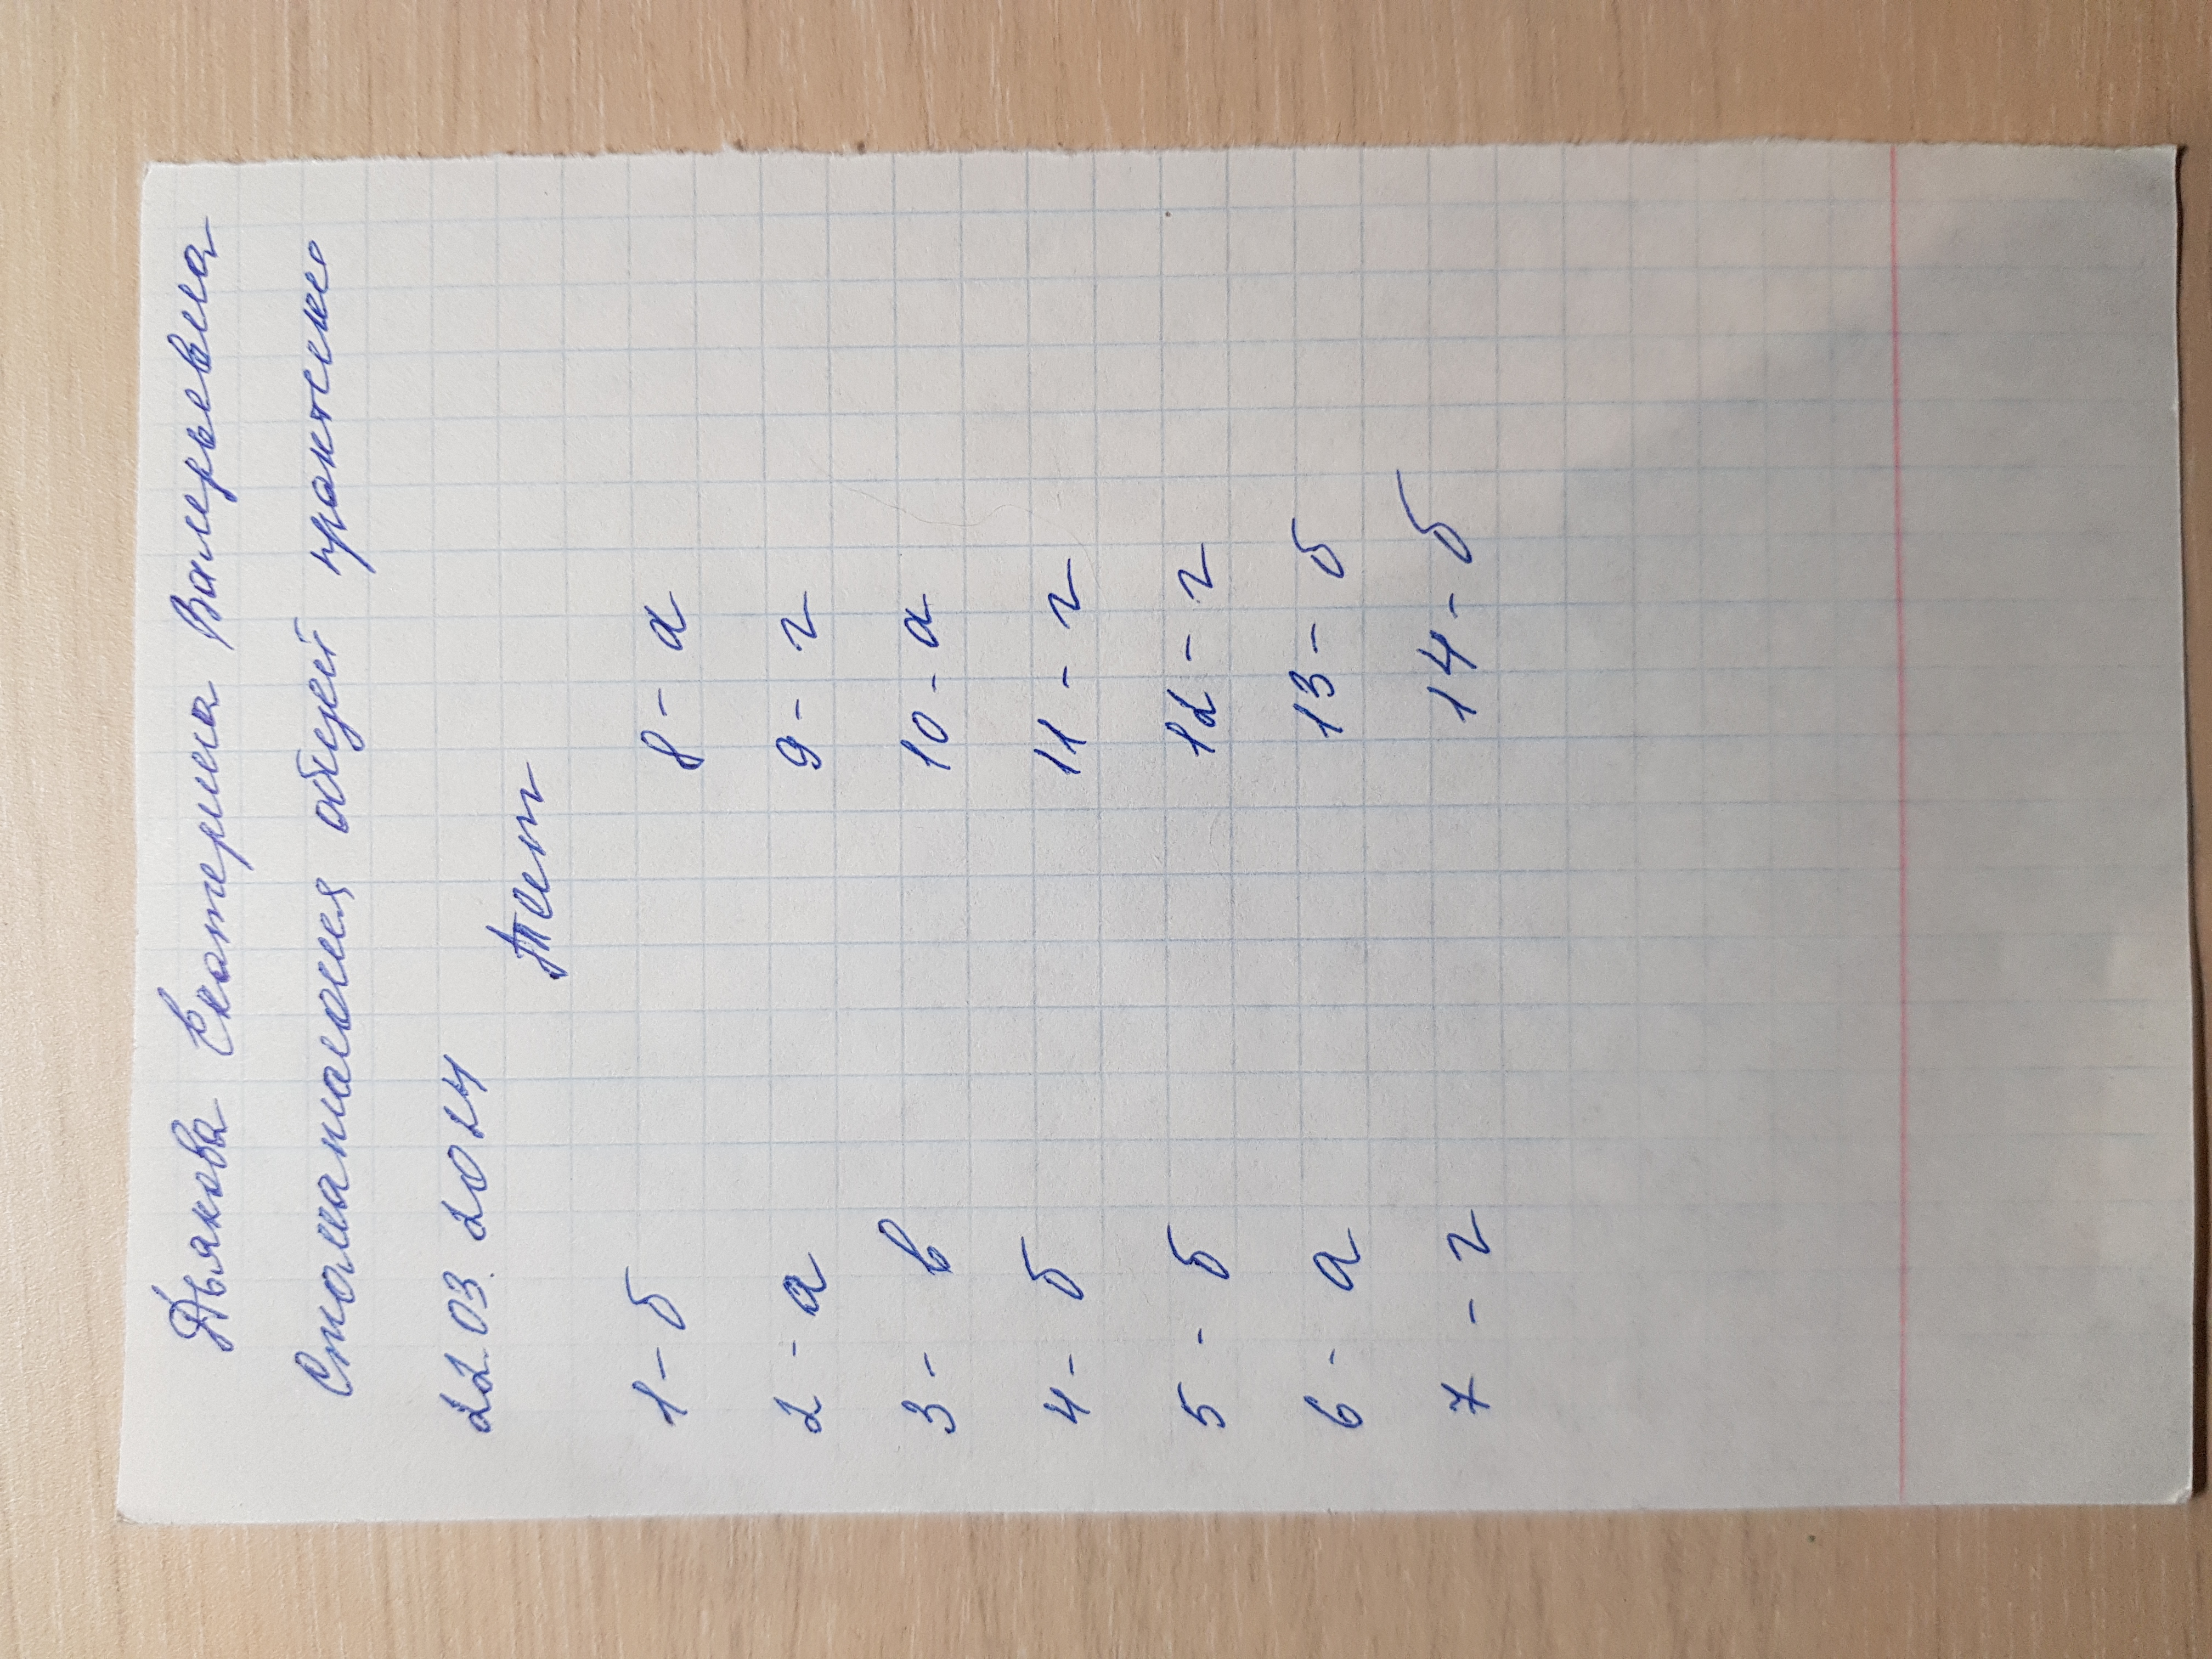 Дьякова Екатерина Валерьевна
Стоматология общей практики
22.03.2024
Тест
1 - б
2 - а
3 - в
4 - б
5 - б
6 - а
7 - г
8 - а
9 - г
10 - а
11 - г
12 - г
13 - б
14 - б